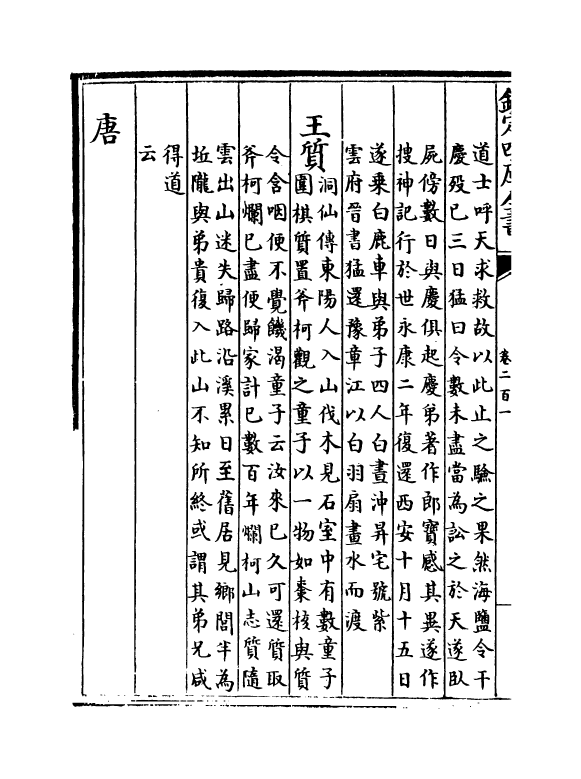 欽定四庫全書
卷二百一
道士呼天求救故以此止之驗之果然海鹽令干
慶歿已三日猛曰令數未盡當為訟之於天遂臥
屍傍數日與慶俱起慶弟著作郎寶感其異遂作
搜神記行於世永康二年復還西安十月十五日
遂乗白鹿車與弟子四人白晝沖昇宅號紫
雲府晉書猛還豫章江以白羽扇畫水而渡
王質
洞仙傳東陽人入山伐木見石室中有數童子
圍棋質置斧柯觀之童子以一物如棗核與質
令含咽便不覺饑渴童子云汝來已久可還質取
斧柯爛已盡便歸家計已數百年爛柯山志質隨
雲出山迷失歸路沿溪累日至舊居見鄉閭半為
坵隴與弟貴復入此山不知所終或謂其弟兄咸
得道
云
唐